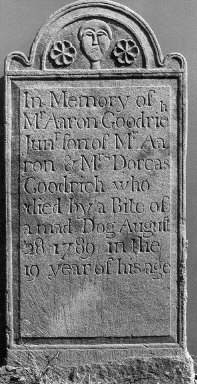 In Memory of
Mr Aaron Goodrich
Junr. son of Mr Aa
ron & Mrs Dorcas
Goodrich who
died by a Bite of
a mad Dog August
28 1789 in the
19 year of his age